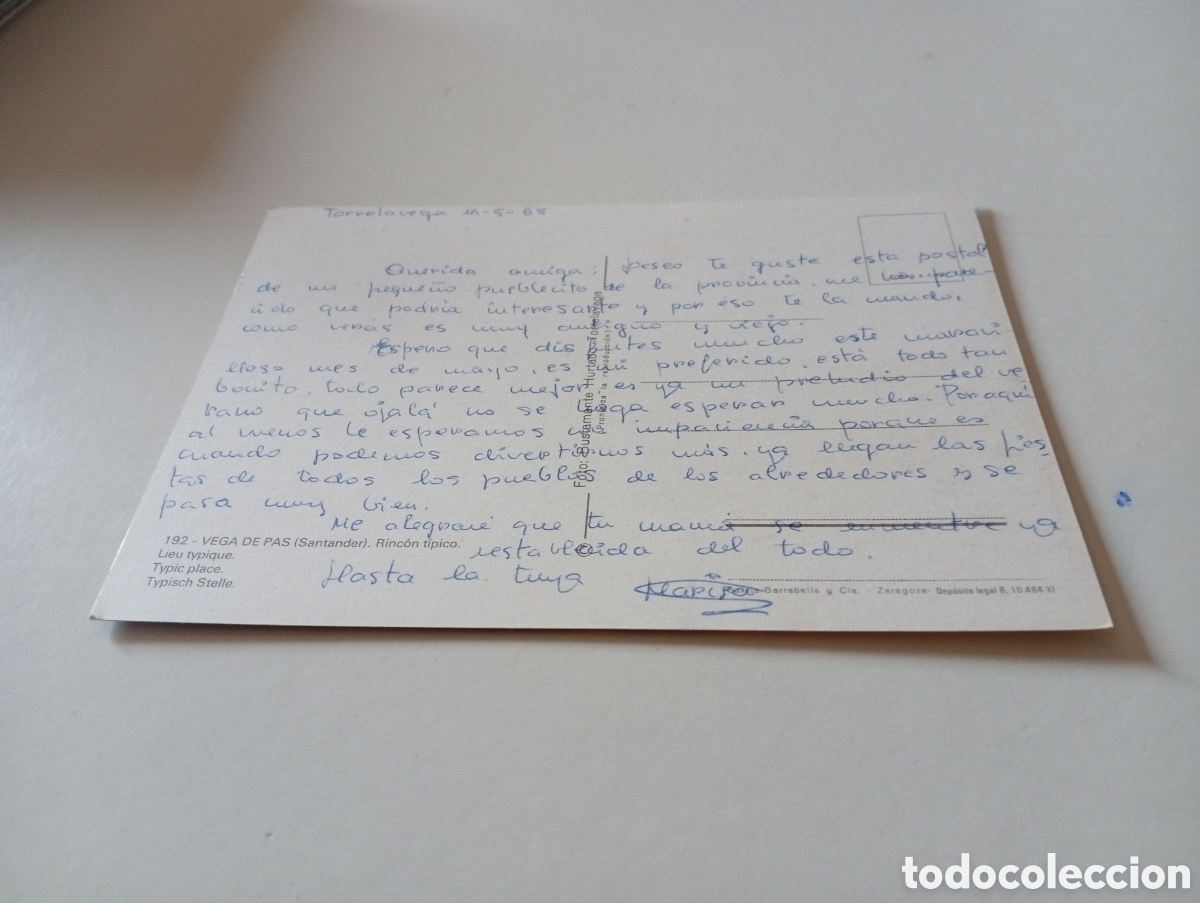 Torrelavega 14-5-68
Querida amiga: Deseo te guste esta postal
de un pequeño pueblecito de la provincia, me ha pare-
cido que podria interesarte y por eso te la mando,
como verás es muy antiguo y viejo.
Espero que disfrutes mucho este maravi-
lloso mes de mayo, es mi preferido, está todo tan
bonito, todo parece mejor, es ya un preludio del ve
rano que ojalá no se haga esperar mucho. Por aqui
al menos le esperamos con impaciencia porque es
cuando podemos divertirnos más, ya llegan las fies
tas de todos los pueblos de los alrededores y se
pasa muy bien.
Me alegraré que tu mamá se encuentre ya
restablecida del todo.
Hasta la tuya
Marisa
192 - VEGA DE PAS (Santander). Rincón típico.
Lieu typique.
Typic place.
Typisch Stelle.
Foto: Bustamante Hurtado. Torrelavega
(Prohibida la reproducción)
Garrabella y Cía. - Zaragoza- Depósito legal B. 10.484-XI
todocoleccion